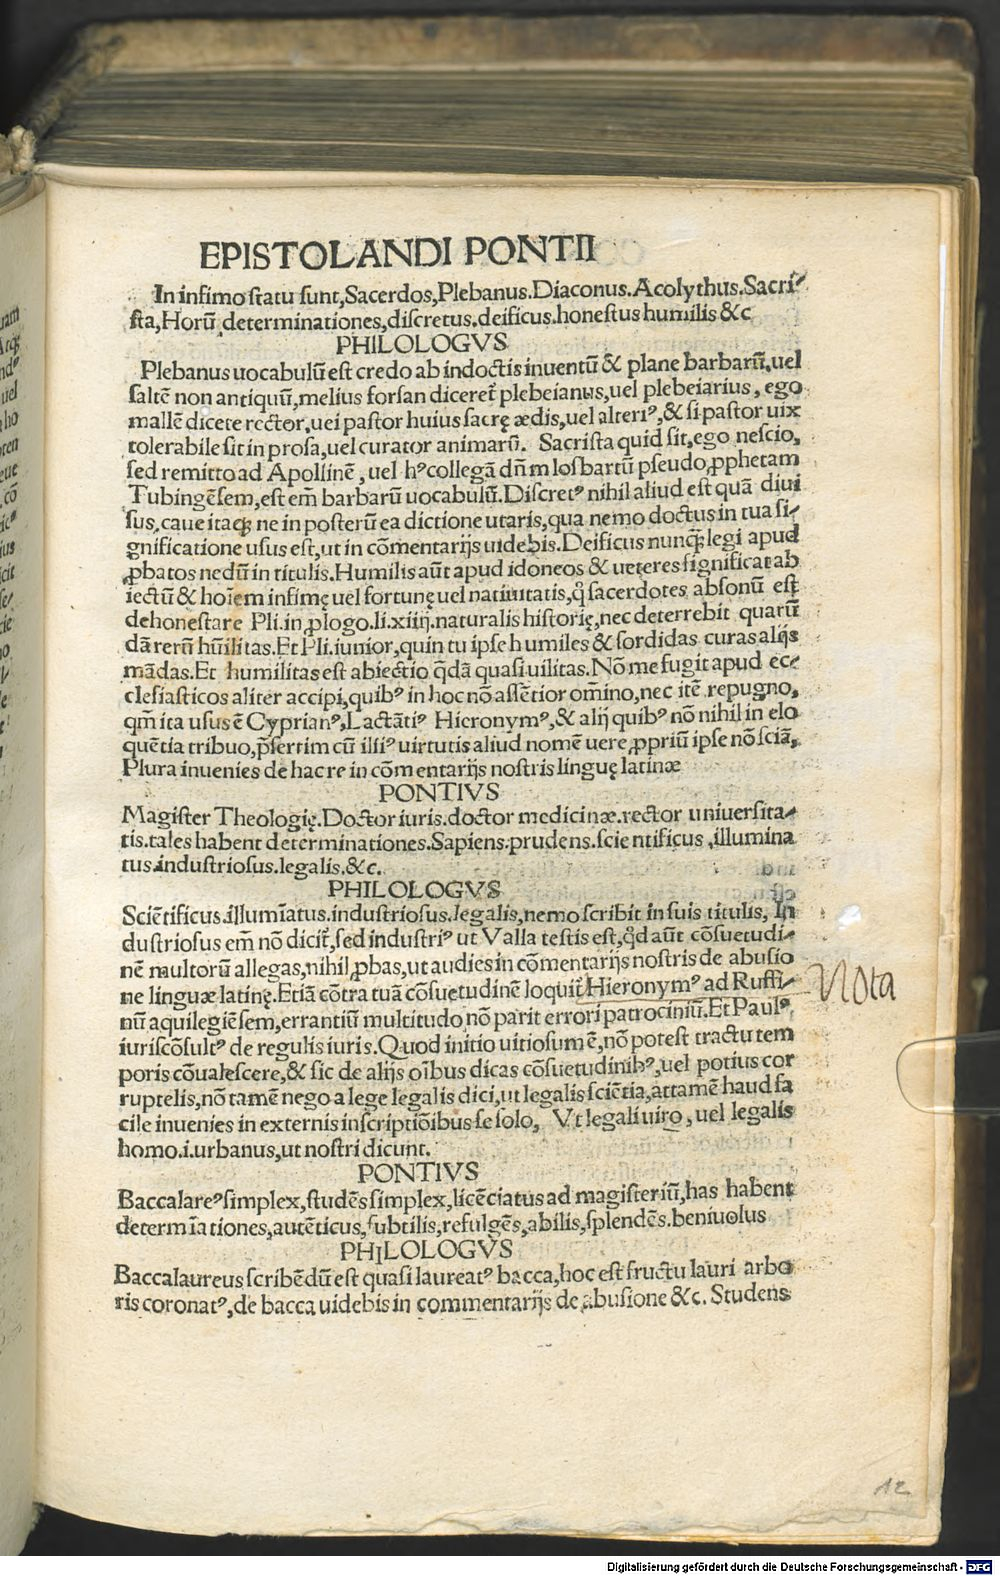 EPISTOLANDI PONTII
In infimo statu sunt,Sacerdos,Plebanus.Diaconus.Acolythus.Sacri-
sta,Horũ determinationes,discretus.deificus.honestus humilis &c
PHILOLOGVS
Plebanus uocabulũ est credo ab indoctis inuentũ & plane barbarũ,uel
saltẽ non antiquũ,melius forsan diceret᷑ plebeianus,uel plebeiarius, ego
mallẽ dicete rector,uei pastor huius sacrę ædis,uel alteriꝰ,& si pastor uix
tolerabile sit in prosa,uel curator animarũ. Sacrista quid sit,ego nescio,
sed remitto ad Apollinẽ, uel hꝰ collegã dñm losbartũ pseudo ꝓphetam
Tubingẽsem,est em̃ barbarũ uocabulũ.Discretꝰ nihil aliud est quã diui
sus,caue itaqꝫ ne in posterũ ea dictione utaris,qua nemo doctus in tua si-
gnificatione usus est,ut in cõmentarijs uidebis.Deificus nunqꝫ legi apud
ꝓbatos nedũ in titulis.Humilis aũt apud idoneos & ueteres significat ab
iectũ & hoĩem infimę uel fortunę uel natiuitatis,q̊ sacerdotes absonũ est
dehonestare Pli.in ꝓlogo.li.xiiij.naturalis historię,nec deterrebit quarũ
dã rerũ hũilitas.Et Pli.iunior,quin tu ipse humiles & sordidas curas alijs
mãdas.Et humilitas est abiectio q̃dã quasi uilitas.Nõ me fugit apud ec-
clesiasticos aliter accipi,quibꝰ in hoc nõ assẽtior om̃ino,nec itẽ repugno,
qm̃ ita usus ẽ Cyprianꝰ,Lactãtiꝰ Hieronymꝰ,& alij quibꝰ nõ nihil in elo
quẽtia tribuo,p̃sertim cũ ilsiꝰ uirtutis aliud nomẽ uere ꝓpriũ ipse nõ sciã,
Plura inuenies de hac re in cõmentarijs nostris linguę latinæ
PONTIVS
Magister Theologię.Doctor iuris.doctor medicinæ.rector uniuersita-
tis.tales habent determinationes.Sapiens.prudens.scientificus,illumina
tus.industriosus.legalis.&c.
PHILOLOGVS
Sciẽtificus.illumĩatus.industriosus.legalis,nemo scribit in suis titulis, In
dustriosus em̃ nõ dicit᷑,sed industriꝰ ut Valla testis est,q̊d aũt cõsuetudi-
nẽ multorũ allegas,nihil ꝓbas,ut audies in cõmentarijs nostris de abusio
ne linguæ latinę.Etiã cõtra tuã cõsuetudinẽ loquit᷑ Hieronymꝰ ad Ruffi-
nũ aquilegiẽsem,errantiũ multitudo nõ parit errori patrociniũ.Et Paulꝰ
iuriscõsultꝰ de regulis iuris.Quod initio uitiosum ẽ,nõ potest tractu tem
poris cõualescere,& sic de alijs oĩbus dicas cõsuetudinibꝰ,uel potius cor
ruptelis,nõ tamẽ nego a lege legalis dici,ut legalis sciẽtia,attamẽ haud fa
cile inuenies in externis inscriptiõibus se solo, Vt legali uiro, uel legalis
homo.i.urbanus,ut nostri dicunt.
PONTIVS
Baccalareꝰ simplex,studẽs simplex,licẽciatus ad magisteriũ,has habent
determĩationes,autẽticus,subtilis,refulgẽs,abilis,splendẽs.beniuolus
PHILOLOGVS
Baccalaureus scribẽdũ est quasi laureatꝰ bacca,hoc est fructu lauri arbo
ris coronatꝰ,de bacca uidebis in commentarijs de abusione &c. Studens
Nota
12
Digitalisierung gefördert durch die Deutsche Forschungsgemeinschaft - DFG